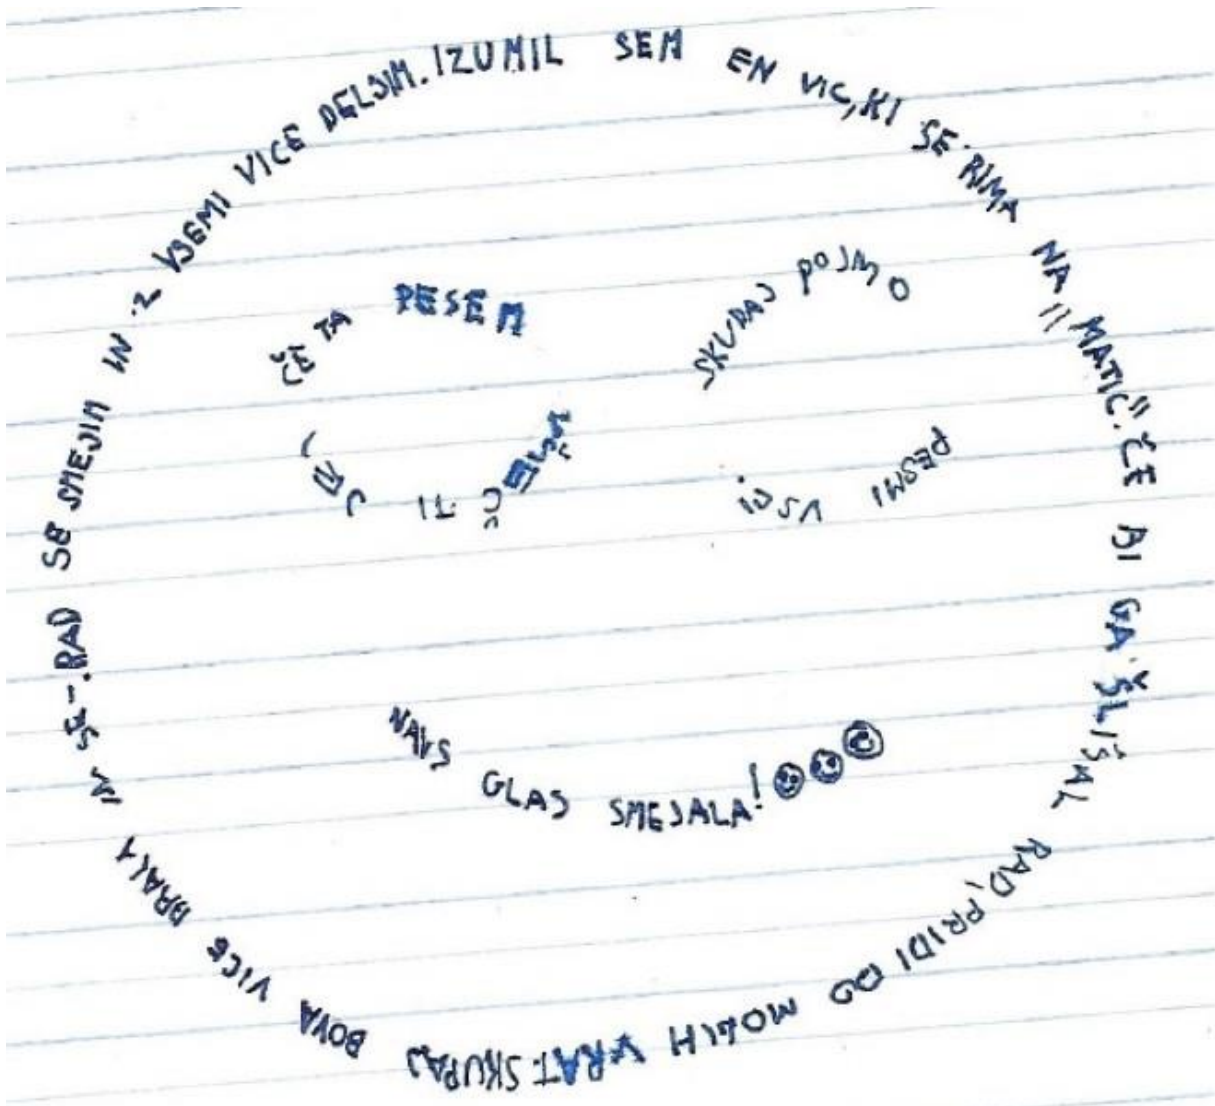 RAD SE SMEJIM IN Z VSEMI VICE DELJIM. IZUMIL SEM EN VIC, KI SE RIMA NA "MATIC". ČE BI GA ŠLIŠAL RAD, PRIDI DO MOJIH VRAT. SKUPAJ BOVA VICE BRALA IN SE -
ČE TA PESEM
VŠEČ TI JE,
SKUPAJ POJMO
PESMI VSI.
NAVS GLAS SMEJALA!